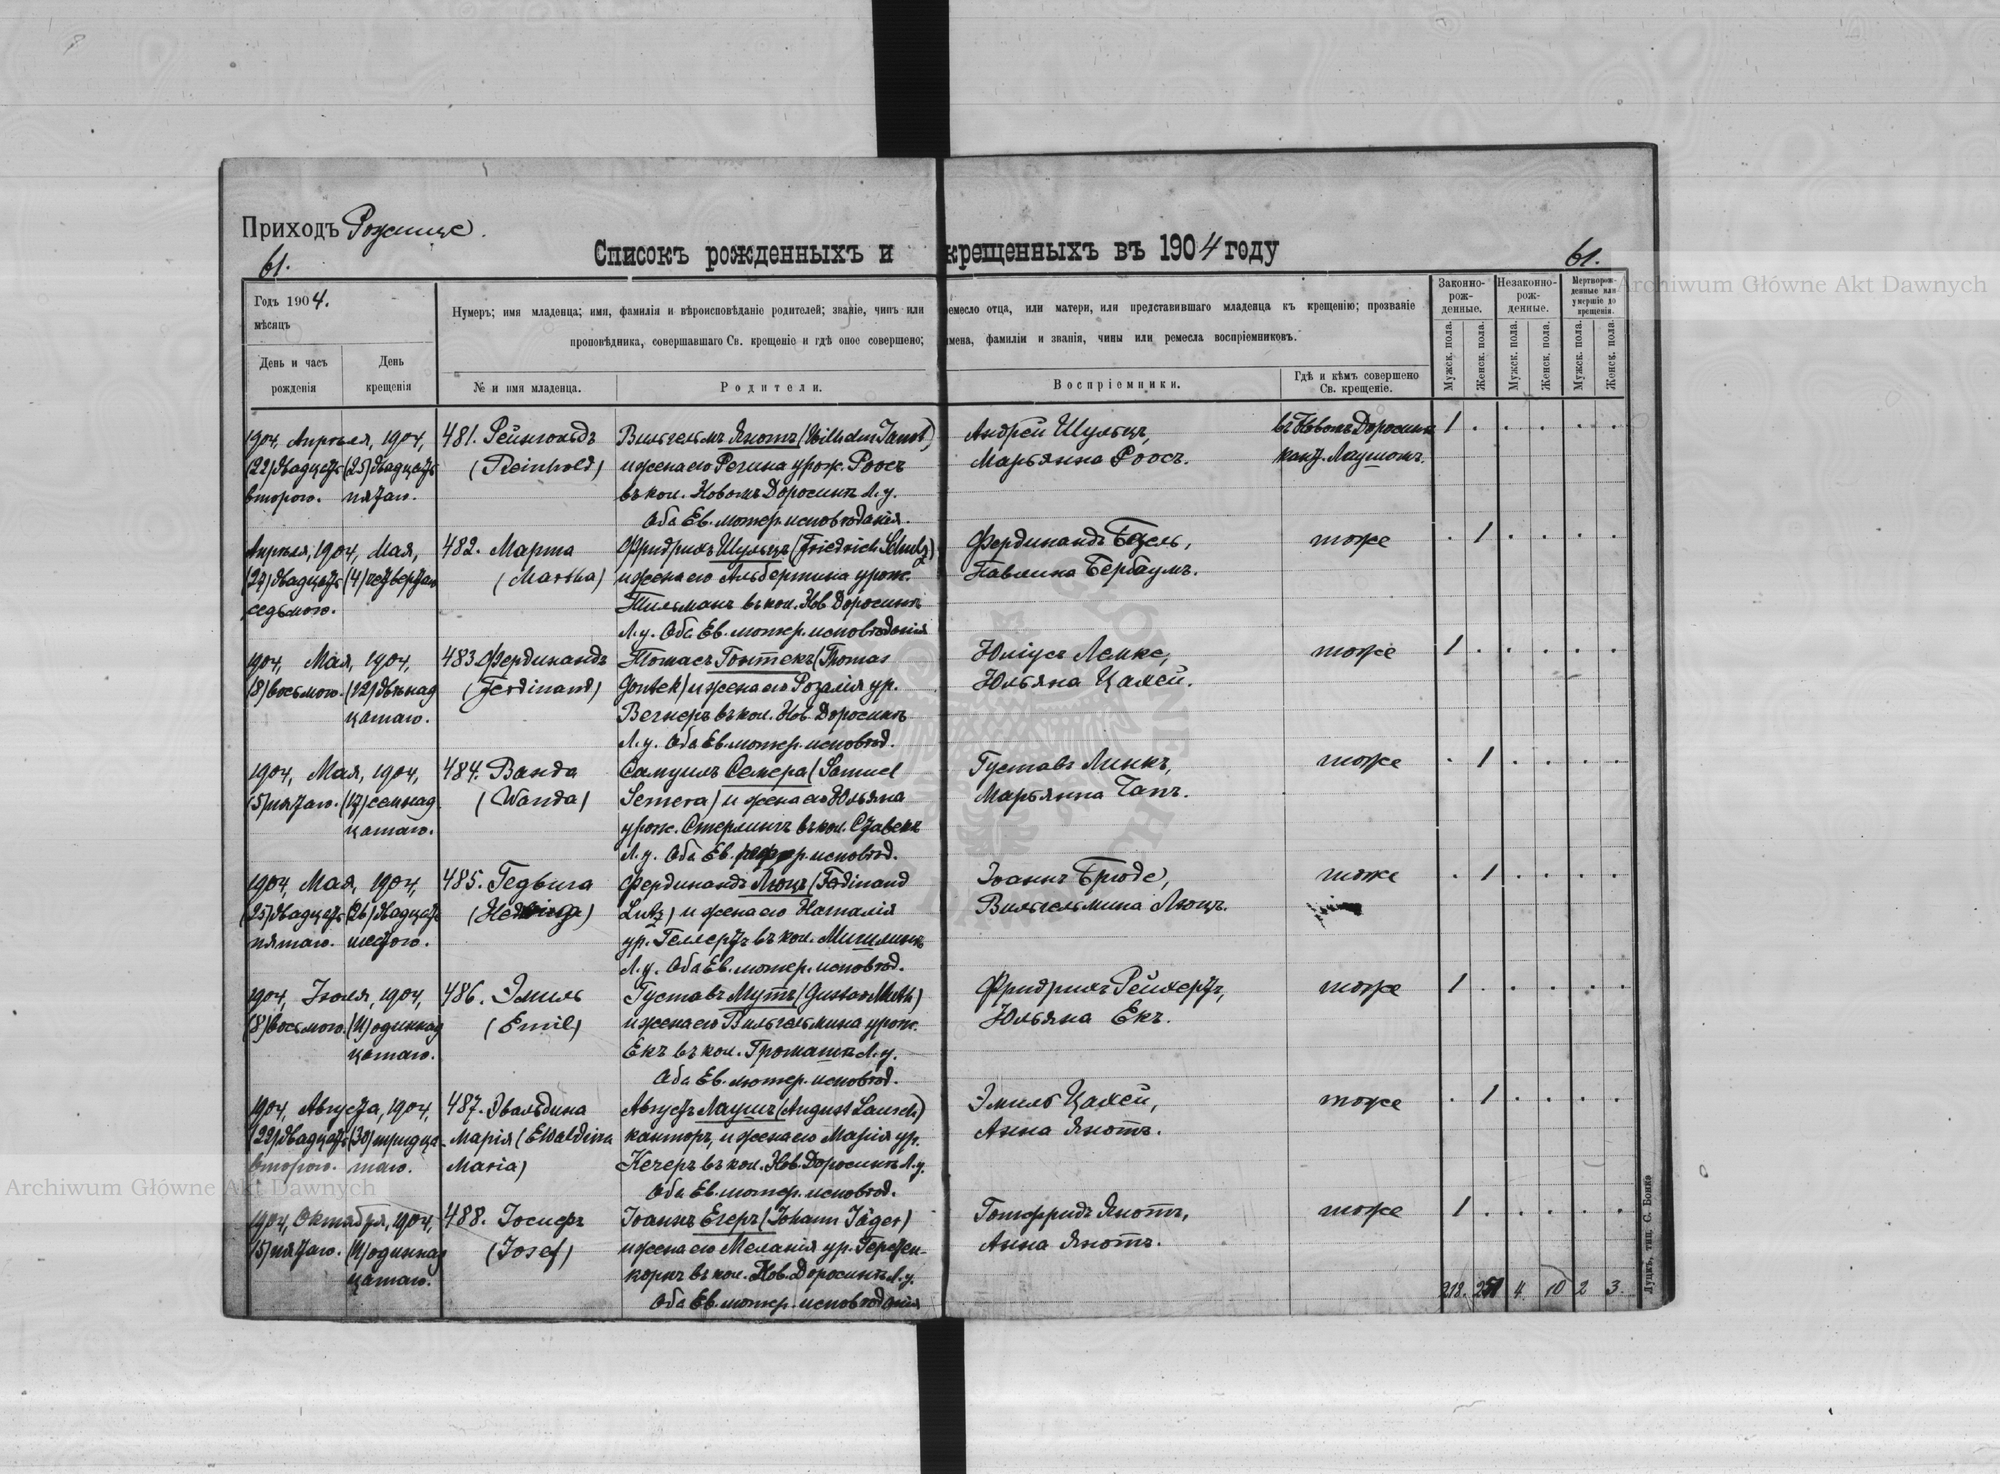 Приходъ Рожище.
61.
Списокъ рожденныхъ и крещенныхъ въ 1904 году
61.
Годъ 1904.
мѣсяцъ
День и часъ рожденія
День крещенія
Нумеръ; имя младенца; имя, фамилія и вѣроисповѣданіе родителей; званіе, чинъ или ремесло отца, или матери, или представившаго младенца къ крещенію; прозваніе
проповѣдника, совершавшаго Св. крещеніе и гдѣ оное совершено; имена, фамиліи и званія, чины или ремесла воспріемниковъ.
№ и имя младенца.
Родители.
Воспріемники.
Гдѣ и кѣмъ совершено
Св. крещеніе.
Законно-
рож-
денные.
Незаконно-
рож-
денные.
Мертворож-
денные или
умершіе до
крещенія.
Мужск. пола.
Женск. пола.
Мужск. пола.
Женск. пола.
Мужск. пола.
Женск. пола.
1904, Апрѣля, 1904, 481. Рейнгольдъ Вильгельмъ Янотъ (Wilhelm Janot) Андрей Шульцъ, въ Новомъ Доросинѣ 1 . . . . .
(22) двадцать (25) двадцать (Reinhold) и жена его Регина урож. Роосъ Марьянна Роосъ. кант. Лаушомъ.
второго. пятаго. въ кол. Новомъ Доросинѣ Л. у.
Оба Ев. лютер. исповѣданія.
Апрѣля, 1904, Мая, 482. Марта Фридрихъ Шульцъ (Friedrich Schulz) Фердинандъ тоже . 1 . . . .
(27) двадцать (4) четвертаго (Martha) и жена его Альбертина урож. Павлина Бербаумъ.
седьмого. Тильманъ въ кол. Нов. Доросинѣ
Л. у. Оба Ев. лютер. исповѣданія
1904, Мая, 1904, 483. Фердинандъ Томасъ Гонтекъ (Thomas Юліусъ Лемке, тоже 1 . . . . .
(8) восьмого. (12) двѣнад (Ferdinand) Gontek) и жена его Розалія ур. Юльяна Цахей.
цатаго. Вегнеръ въ кол. Нов. Доросинѣ
Л. у. Оба Ев. лютер. исповѣд.
1904, Мая, 1904, 484. Ванда Самуилъ Семера (Samuel Густавъ Линкъ, тоже . 1 . . . .
(5) пятаго. (17) семнад (Wanda) Semera) и жена его Юльяна Марьянна Чапъ.
цатаго. урож. Стерлингъ въ кол.
Л. у. Оба Ев. реформ. исповѣд.
1904, Мая, 1904, 485. Гедвига Фердинандъ Люцъ (Ferdinand Іоаннъ Брюде, тоже . 1 . . . .
(25) двадцать (26) двадцать (Hedwiga) Lutz) и жена его Наталія Вильгельмина Люцъ.
пятаго. шестого. ур. Геллертъ въ кол.
Л. у. Оба Ев. лютер. исповѣд.
1904, Іюля, 1904, 486. Эмиль Густавъ Мутъ (Gustav Muth) Фридрихъ Рейхертъ, тоже 1 . . . . .
(8) восьмого. (11) одиннад (Emil) и жена его Вильгельмина урож. Юльяна Екъ.
цатаго. Екъ въ кол. Громашъ Л. у.
Оба Ев. лютер. исповѣд.
1904, Августа, 1904, 487. Эвальдина Августъ Лаушъ (August Lausch) Эмиль Цахей, тоже . 1 . . . .
(22) двадцать (30) тридца- Марія (Ewaldina канторъ, и жена его Марія ур. Анна Янотъ.
второго. таго. Maria) Кечеръ въ кол. Нов. Доросинѣ Л. у.
Оба Ев. лютер. исповѣд.
1904, Октября, 1904, 488. Іосифъ Іоаннъ Егеръ (Johann Jäger) Готфридъ Янотъ, тоже 1 . . . . .
(5) пятаго. (11) одиннад (Josef) и жена его Меланія ур. Анна Янотъ.
цатаго. въ кол. Нов. Доросинѣ Л. у.
Оба Ев. лютер. исповѣданія
218. 4. 10 2 3.
Луцкъ, тип. С. Бонко
Archiwum Główne Akt Dawnych
Archiwum Główne Akt Dawnych